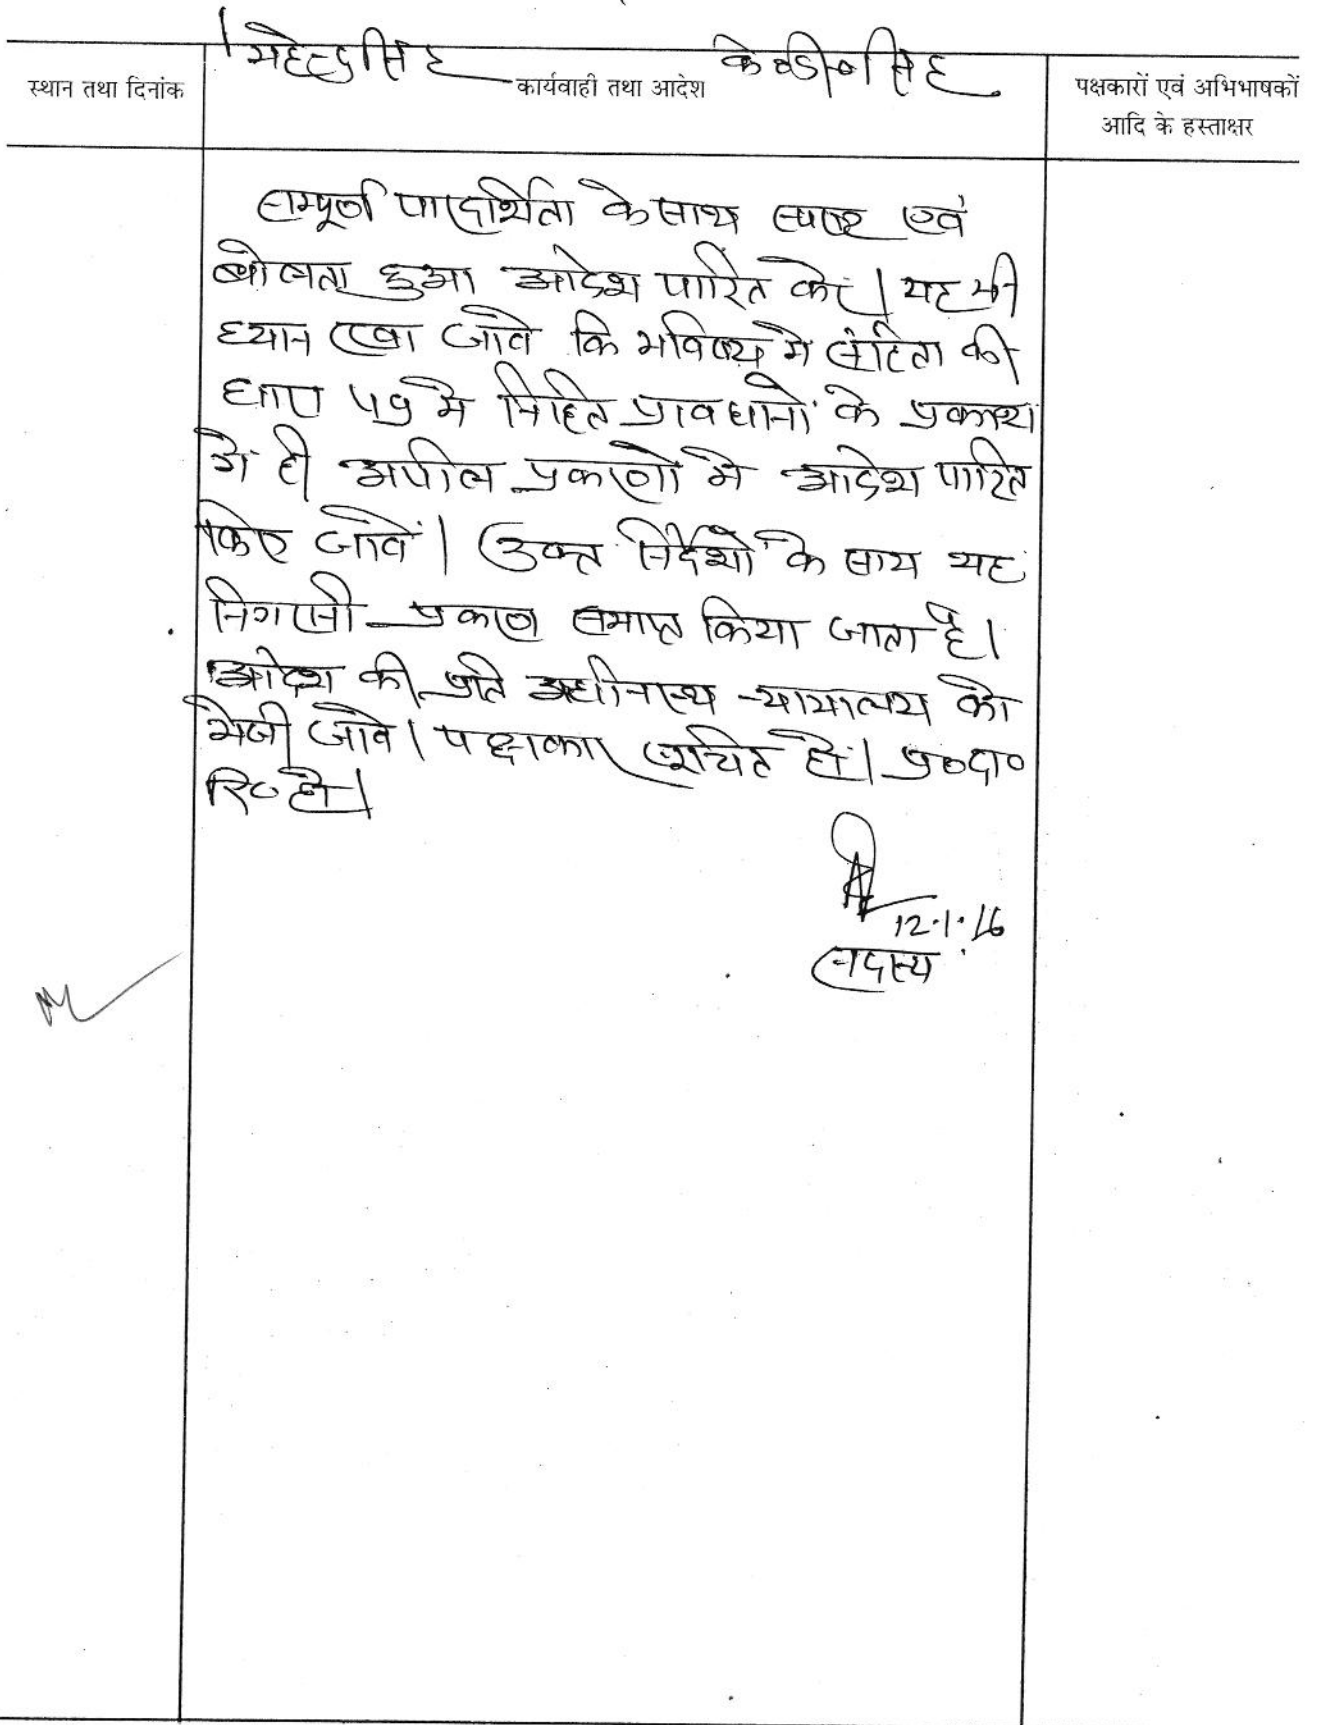 महेन्द्रसिंह
स्थान तथा दिनांक
कार्यवाही तथा आदेश
पक्षकारों एवं अभिभाषकों
आदि के हस्ताक्षर
सम्पूर्ण पारदर्शिता के साथ स्पष्ट एवं
बोलता हुआ आदेश पारित करें। यह भी
ध्यान रखा जावे कि भविष्य में संहिता की
धारा 49 में निहित प्रावधानों के प्रकाश
में ही अपील प्रकरणों में आदेश पारित
किए जावें। उक्त निर्देशों के साथ यह
निगरानी प्रकरण समाप्त किया जाता है।
आदेश की प्रति अधीनस्थ न्यायालय को
भेजी जावे। पक्षकार सूचित हों। प्र0दा0
रि0 हो।
12.1.16
सदस्य